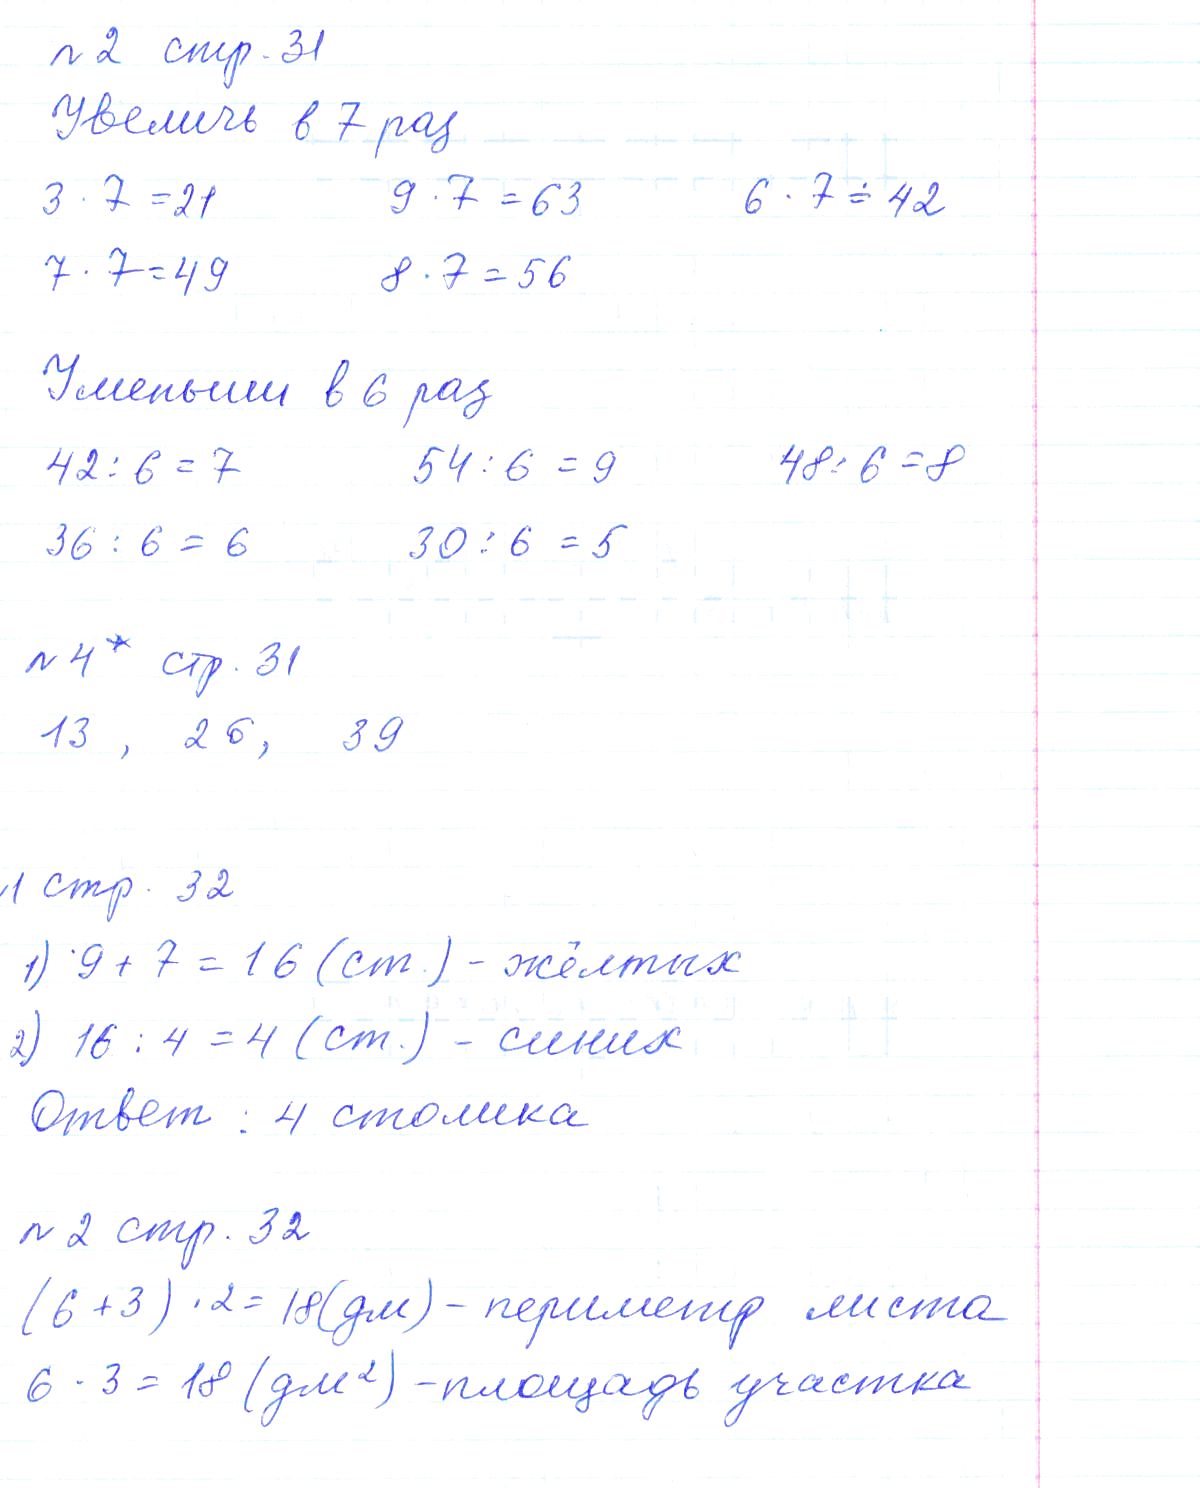 № 2 стр. 31
Увеличь в 7 раз
3 · 7 = 21 9 · 7 = 63 6 · 7 = 42
7 · 7 = 49 8 · 7 = 56
Уменьши в 6 раз
42 : 6 = 7 54 : 6 = 9 48 : 6 = 8
36 : 6 = 6 30 : 6 = 5
№ 4* стр. 31
13 , 26, 39
1 стр. 32
1) 9 + 7 = 16 (ст.) - жёлтых
2) 16 : 4 = 4 (ст.) - синих
Ответ : 4 столика
№ 2 стр. 32
(6 + 3) · 2 = 18 (дм) - периметр листа
6 · 3 = 18 (дм²) - площадь участка